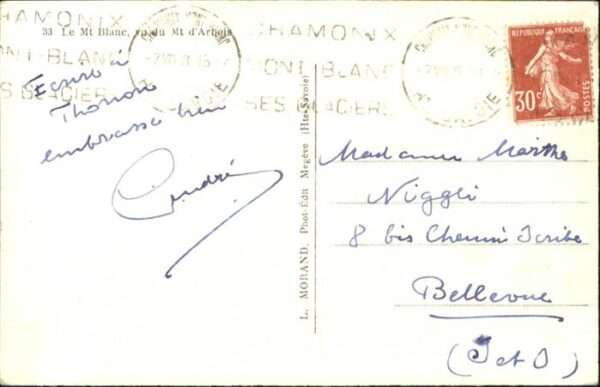 33 Le Mt Blanc, vu du Mt d'Arbois
CHAMONIX
MONT-BLANC
SES GLACIERS
CHAMONIX
MONT-BLANC
SES GLACIERS
RÉPUBLIQUE FRANÇAISE
30c
POSTES
à
Thonon
embrasse bien
André
L. MORAND, Phot-Édit Megève (Hte-Savoie)
Madame Marthe
Niggli
8 bis Chemin Scribe
Bellevue
(S et O)